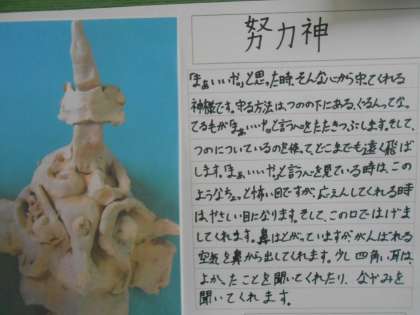 努力神
「まぁいいや。」と思った時、そんな心から守ってくれる
神様です。守る方法は、つのの下にある、ぐるんってなっ
てる毛が「まぁいいや。」と言う心をたたきつぶします。そして、
つのについているのを使って、どこまでも遠く飛ば
します。「まぁいいや。」と言う心を見ている時は、この
ようなちょっと怖い目ですが、応えんしてくれる時
は、やさしい目になります。そして、この口ではげま
してくれます。鼻はとがっていますが、がんばれる
空気を鼻から出してくれます。少し四角い耳は、
よかったことを聞いてくれたり、なやみを
聞いてくれます。